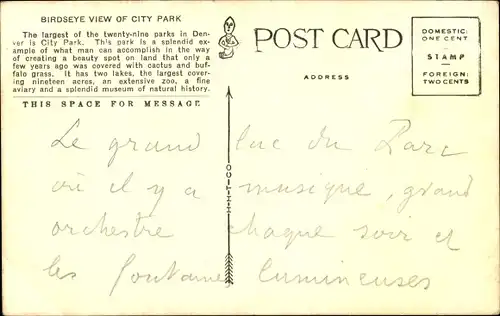 BIRDSEYE VIEW OF CITY PARK
The largest of the twenty-nine parks in Den-
ver is City Park. This park is a splendid ex-
ample of what man can accomplish in the way
of creating a beauty spot on land that only a
few years ago was covered with cactus and buf-
falo grass. It has two lakes, the largest cover-
ing nineteen acres, an extensive zoo, a fine
aviary and a splendid museum of natural history.
THIS SPACE FOR MESSAGE
POST CARD
ADDRESS
DOMESTIC:
ONE CENT
STAMP
FOREIGN:
TWO CENTS
Le grand lac du Parc
où il y a musique, grand
orchestre chaque soir et
les fontaines lumineuses